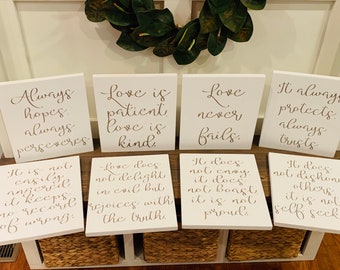 Always
hopes.
always
perseveres
Love is
patient
love is
kind.
Love
never
fails.
It always
protects.
always
trusts.
It is not
easily
angered it
keeps
no record
of wrong.
Love does
not delight
in evil but
rejoices with
the truth.
It does
not envy.
it does
not boast
it is not
proud.
It does
not dishonor
others.
it is not
self seeking